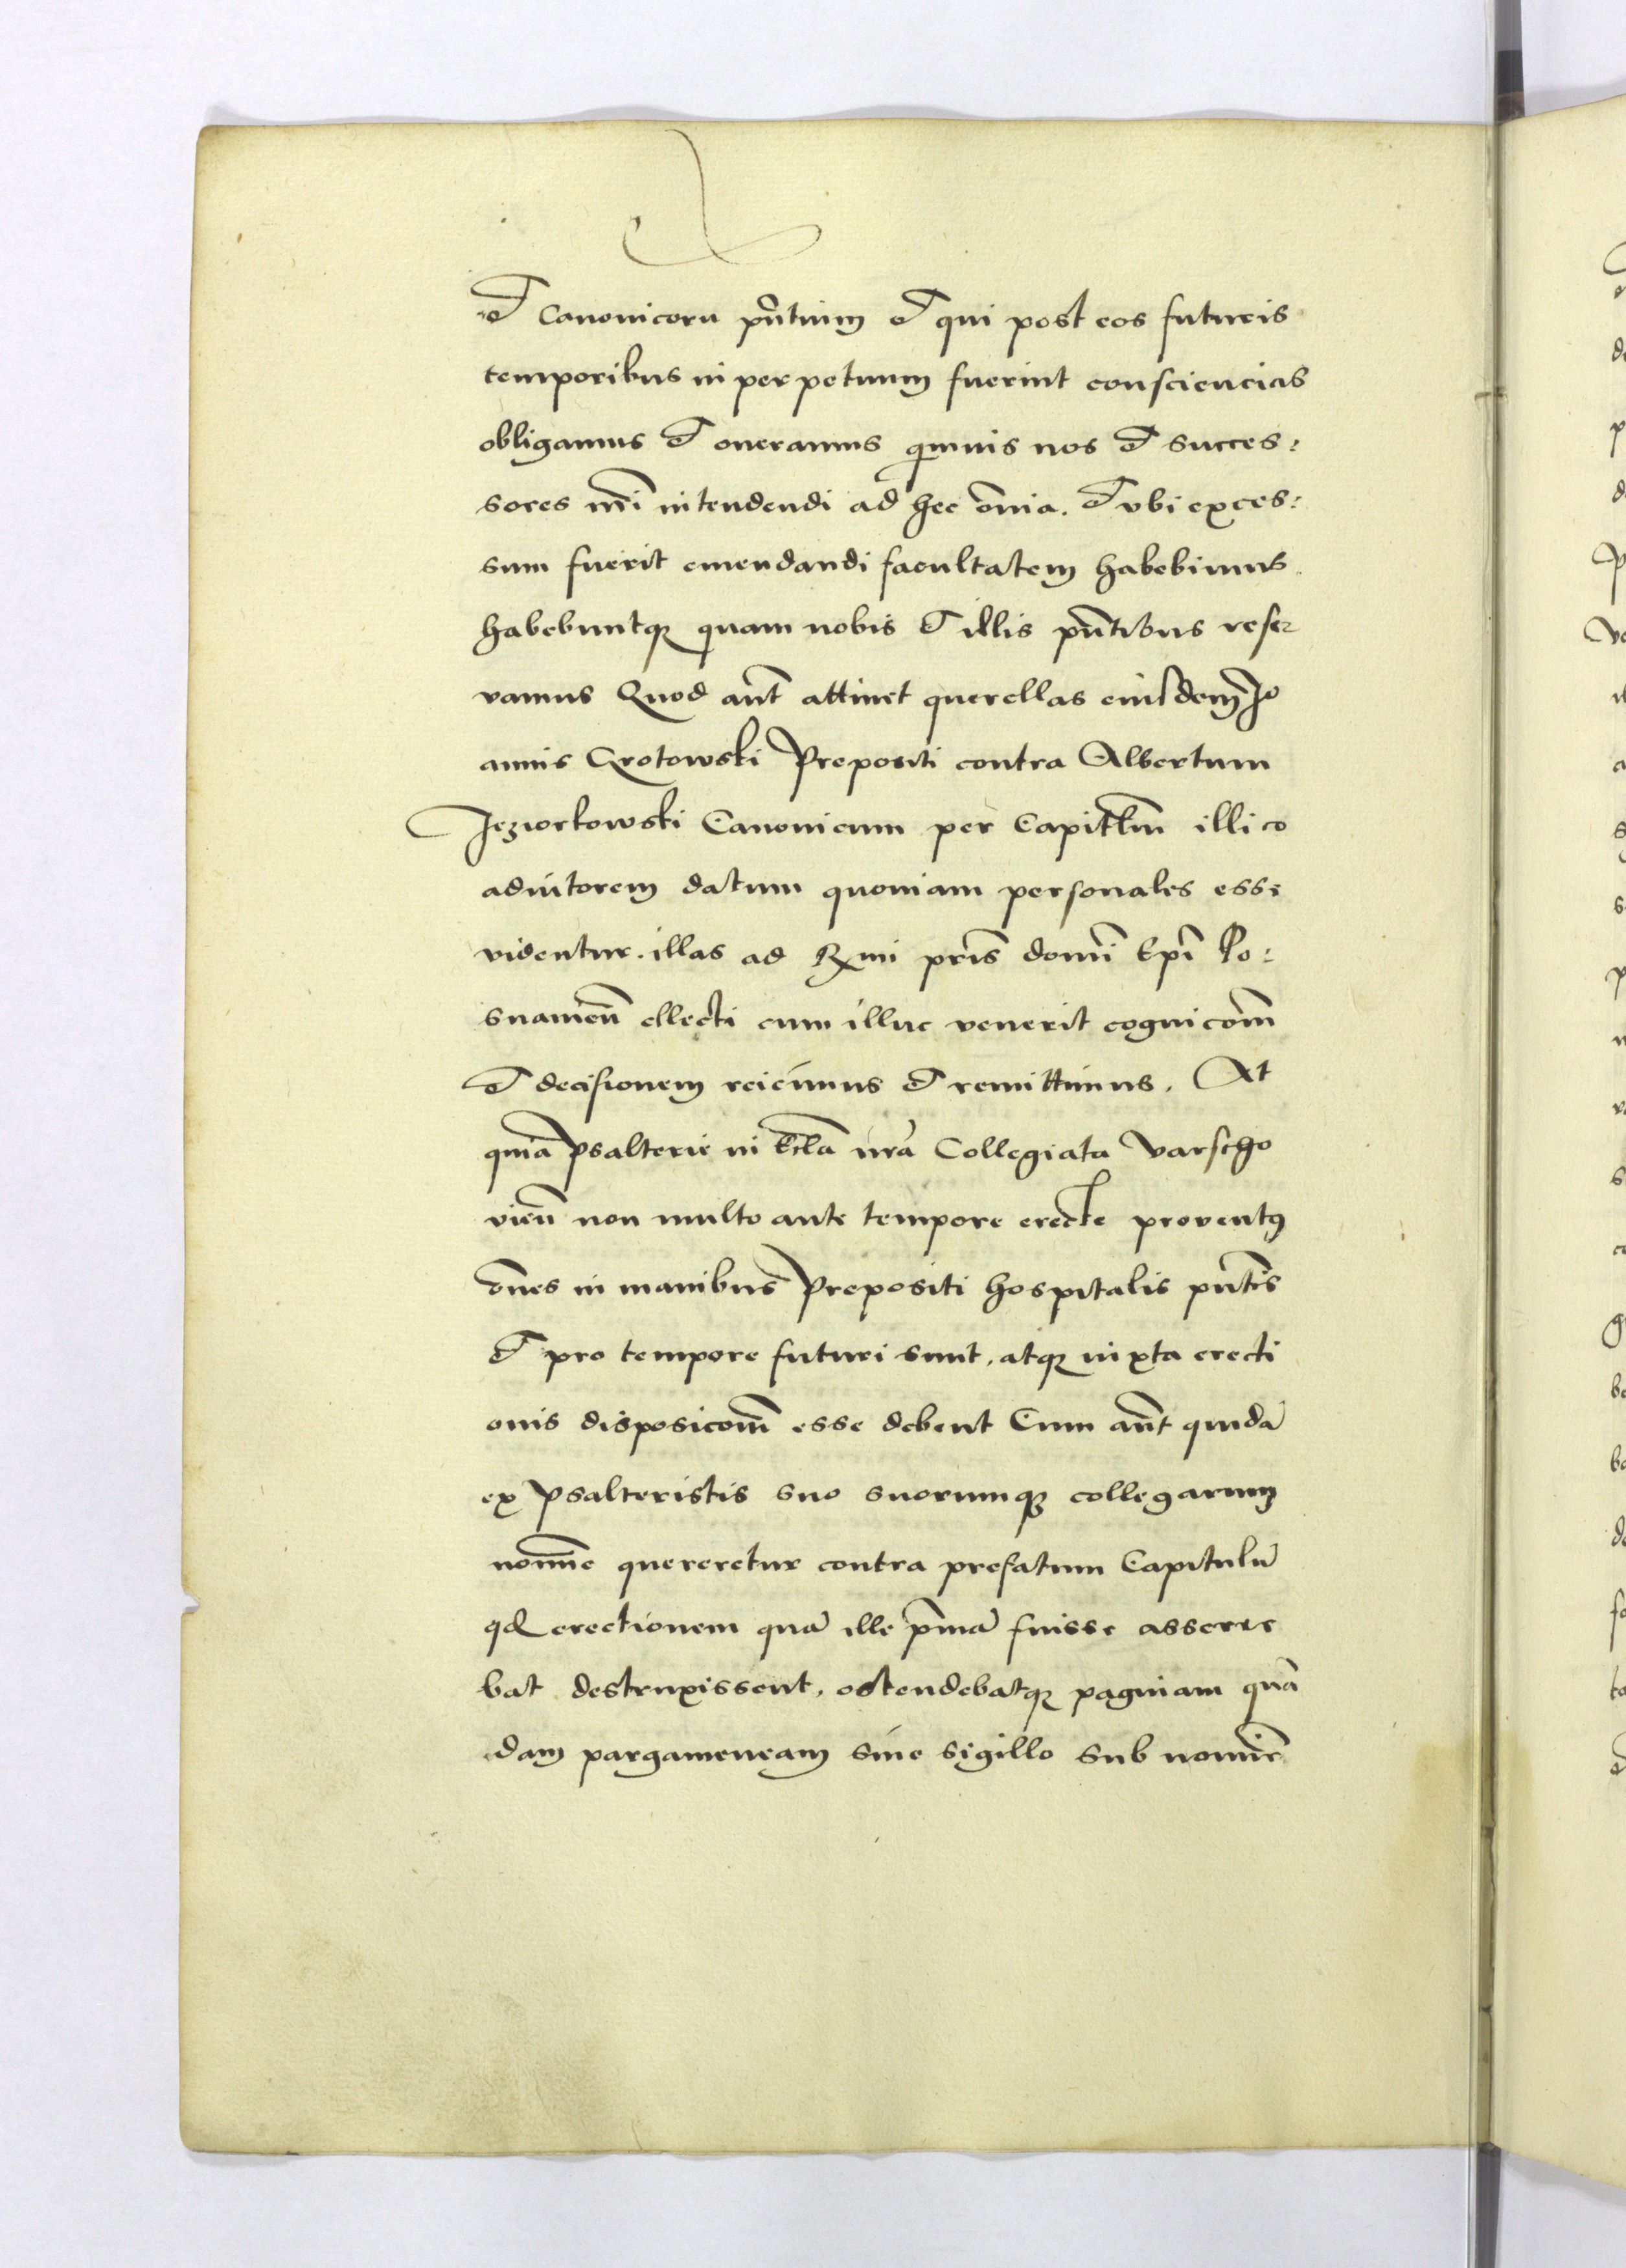 et Canonicoru pñtium et qui post eos futuris
temporibus in perpetuum fuerint consciencias
obligamus et oneramus quiuis nos et succes:
sores nri̅ intendendi ad hec om̅ia. et vbi exces:
sum fuerit emendandi facultatem habebimus
habebuntq quam nobis et illis pn̅tibus reser
vamus Quod aut̅ attinet querellas eiusdem Jo
annis Grotowski Prepositi contra Albertum
Jeziorkowski Canonicum per Capitlm̅ illi co
adiutorem datum quoniam personales esse
videntur. illas ad Rmi pris̅ domi̅ Epi̅ Po:
snanien̅ ellecti cum illuc venerit cognicom̅
et decisionem reicimus et remittimus. At
quia̅ Psalterie in Eccla̅ nra̅ Collegiata Varscho
vien̅ non multo ante tempore erecte proventus
om̅es in manibus Prepositi hospitalis pn̅tis
et pro tempore futuri sunt, atq iuxta erecti
onis disposicom̅ esse debent Cum aut̅ quida̅
ex Psalteristis suo suorumq collegarum
nomi̅e quereretur contra prefatum Capitulu̅
qd erectionem qua̅ ille pri̅ma̅ fuisse assere
bat destruxissent, ostendebatq paginam qua̅
dam pargameneam sine sigillo sub nomi̅e